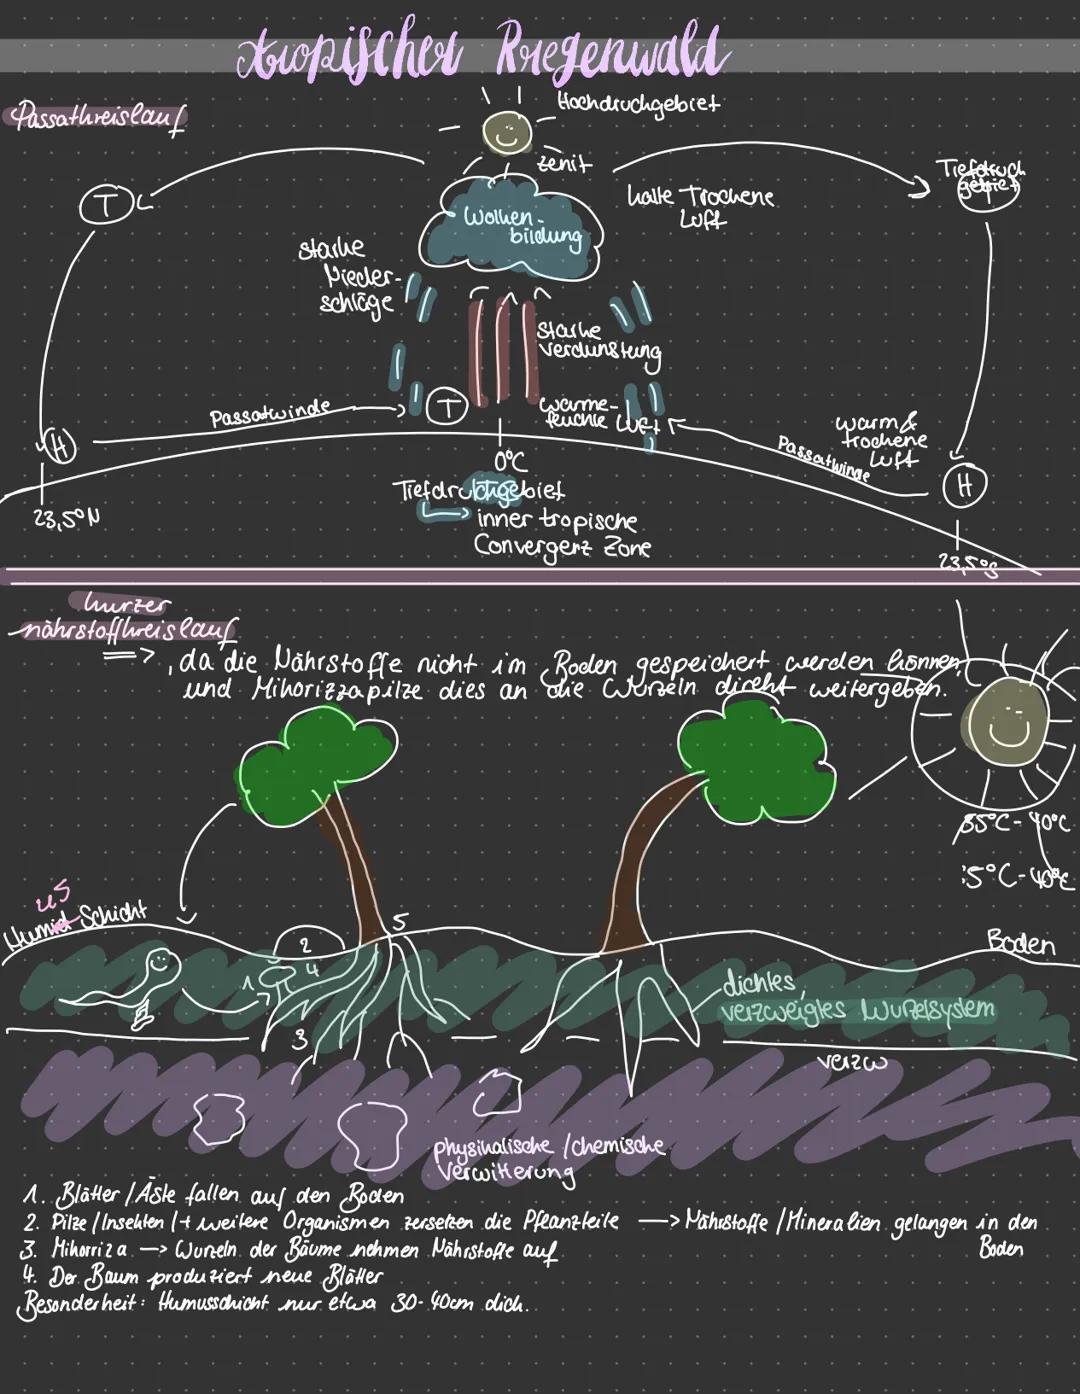 tropischer Rregenwald
Passatkreislauf
Hochdruckgebiet
zenit
Tiefdruck
gebiet
T
T
kalte Trockene
Luft
Wolken-
bildung
starke
Nieder-
schläge
starke
verdunstung
Passatwinde
T
warme-
feuchte Luft
Passatwinde
warm &
trockene
Luft
H
H
0°C
Tiefdruckgebiet
inner tropische
Convergenz Zone
23,5°N
23,5°S
kurzer
nährstoffkreislauf
, da die Nährstoffe nicht im Boden gespeichert werden können
und Mikorizzapilze dies an die Wurzeln direkt weitergeben.
35°C - 40°C
5°C - 40°C
us
Humid Schicht
5
2
1
4
3
Boden
dichtes,
verzweigtes Wurzelsystem
verzw
physikalische / chemische
Verwitterung
1. Blätter / Äste fallen auf den Boden
2. Pilze / Insekten / + weitere Organismen zersetzen die Pflanzteile → Nährstoffe / Mineralien gelangen in den
Boden
3. Mikorriza → Wurzeln der Bäume nehmen Nährstoffe auf
4. Der Baum produziert neue Blätter
Besonderheit: Humusschicht nur etwa 30-40cm dick.